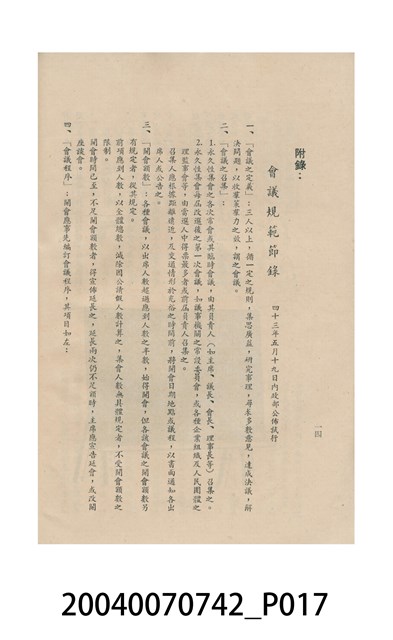 附錄：
會議規範節錄
四十三年五月十九日內政部公佈試行
一、「會議之定義」：三人以上，循一定之規則，集思廣益，研究事理，尋求多數意見，達成決議，解
決問題，以收群策群力之效，謂之會議。
二、「會議之召集」：
1.永久性集會之各次常會或其臨時會議，由其負責人（如主席、議長、會長、理事長等）召集之。
2.永久性集會每屆改選後之第一次會議，如議事機關之常設委員會，或各種企業組織及人民團體之
理監事會等，由當選人中得票最多者或前屆負責人召集之。
召集人應根據距離遠近，及交通情形於充裕之時間前，將開會日期地點或議程，以書面通知各出
席人或公告之。
三、「開會額數」：各種會議，以出席人數超過應到人數之半數，始得開會，但各該會議之開會額數另
有規定者，從其規定。
前項應到人數，以全體總數，減除因公請假人數計算之，集會人數無具體規定者，不受開會額數之
限制。
開會時間已至，不足開會額數者，得宣佈延長之，延長兩次仍不足額時，主席應宣告延會，或改開
座談會。
四、「會議程序」：開會應事先編訂會議程序，其項目如左：
一四
20040070742_P017